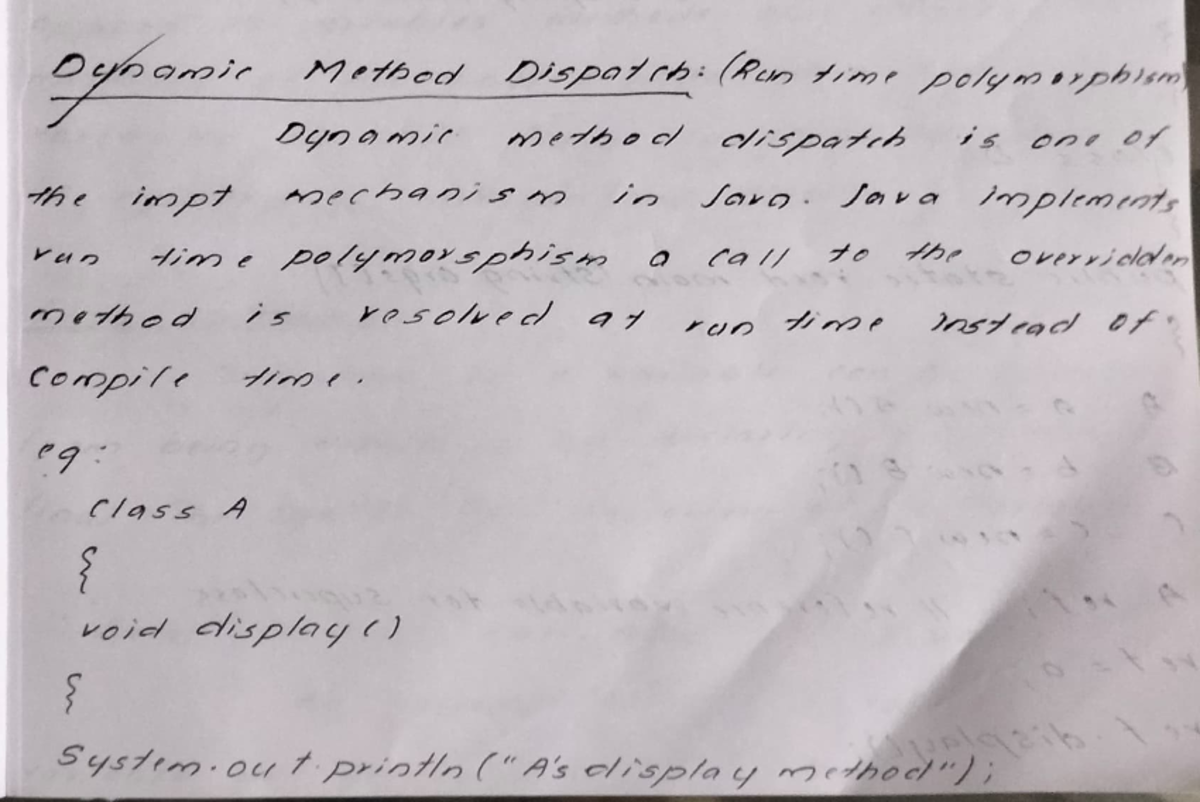 Dynamic Method Dispatch: (Run time polymorphism)
Dynamic method dispatch is one of
the impt mechanism in Java. Java implements
run time polymorsphism a call to the overridden
method is resolved at run time instead of
compile time.
eg:
Class A
{
void display()
{
System.out.println("A's display method");